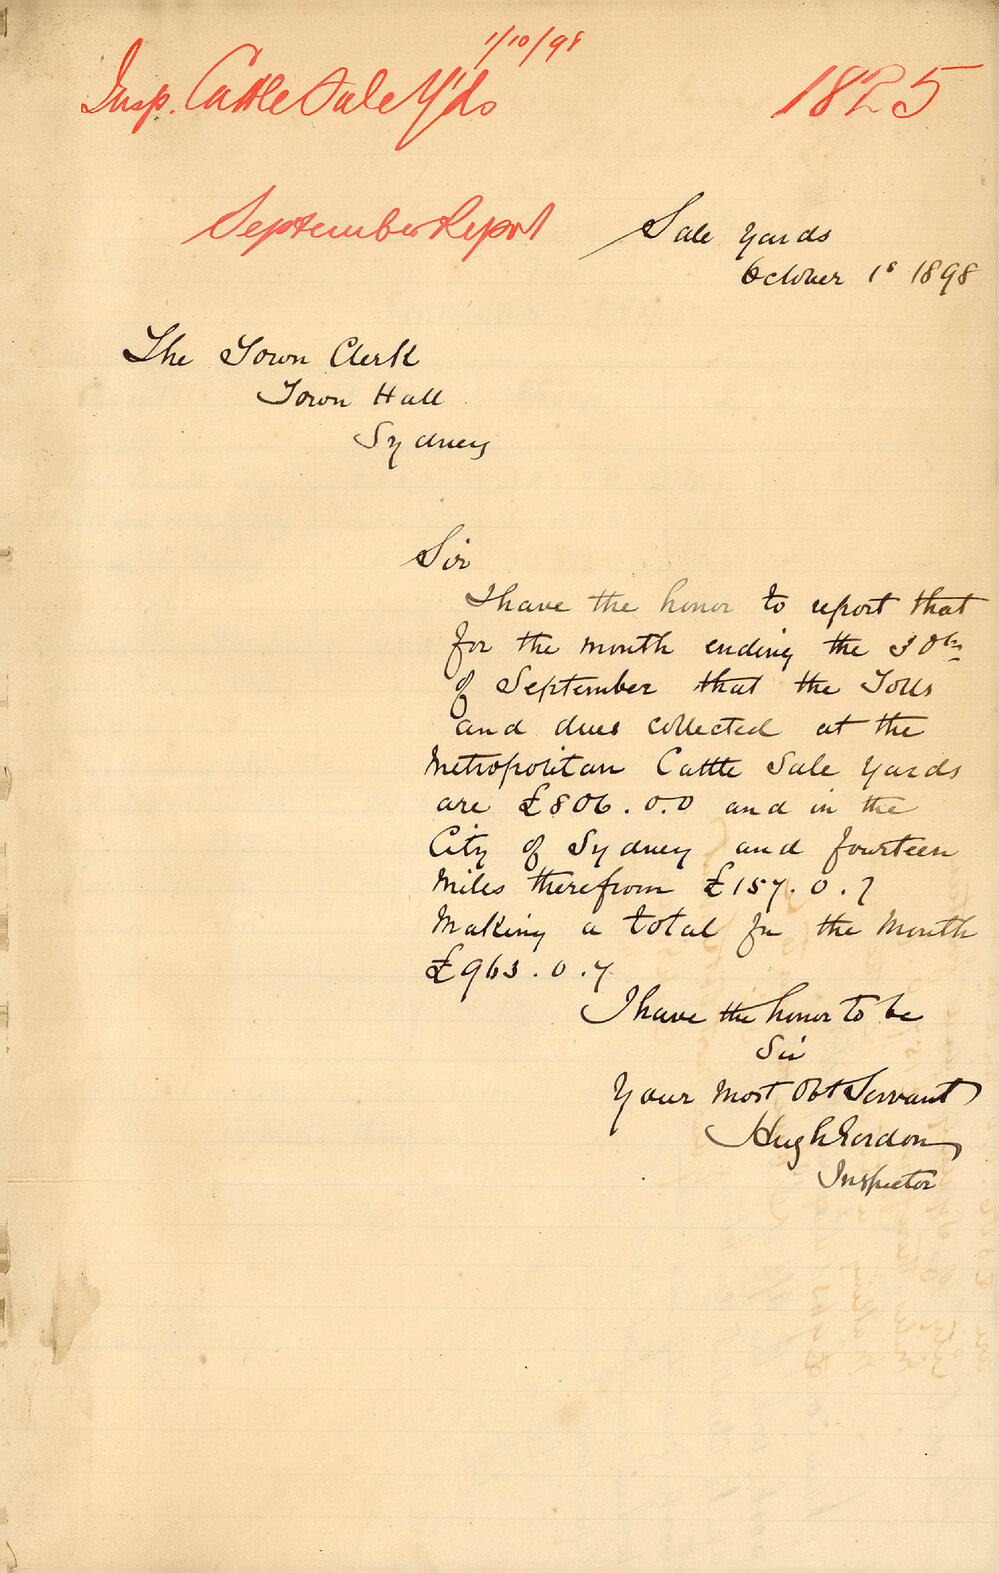 1/10/98
Insp. Cattle Sale Y'ds
1825
September Report
Sale Yards
October 1s 1898
The Town Clerk
Town Hall
Sydney
Sir
I have the honor to report that
for the month ending the 30th
of September that the Tolls
and dues collected at the
Metropolitan Cattle Sale Yards
are £806.0.0 and in the
City of Sydney and fourteen
Miles therefrom £157.0.7
Making a total for the Month
£963.0.7
I have the honor to be
Sir
Your Most Obt Servant
Hugh Gordon
Inspector